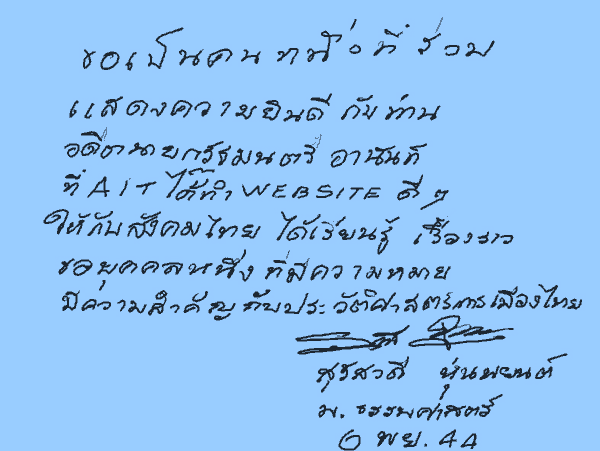 ขอเป็นคนหนึ่งที่ร่วม
แสดงความยินดี กับท่าน
อดีตนายกรัฐมนตรี อานันท์
ที่ AIT ได้ทำ WEBSITE ดี ๆ
ให้กับสังคมไทย ได้เรียนรู้ เรื่องราว
ของบุคคลหนึ่ง ที่มีความหมาย
มีความสำคัญ กับประวัติศาสตร์การเมืองไทย
สุรสวดี หุ่นพยนต์
ม. ธรรมศาสตร์
๑ พย. 44